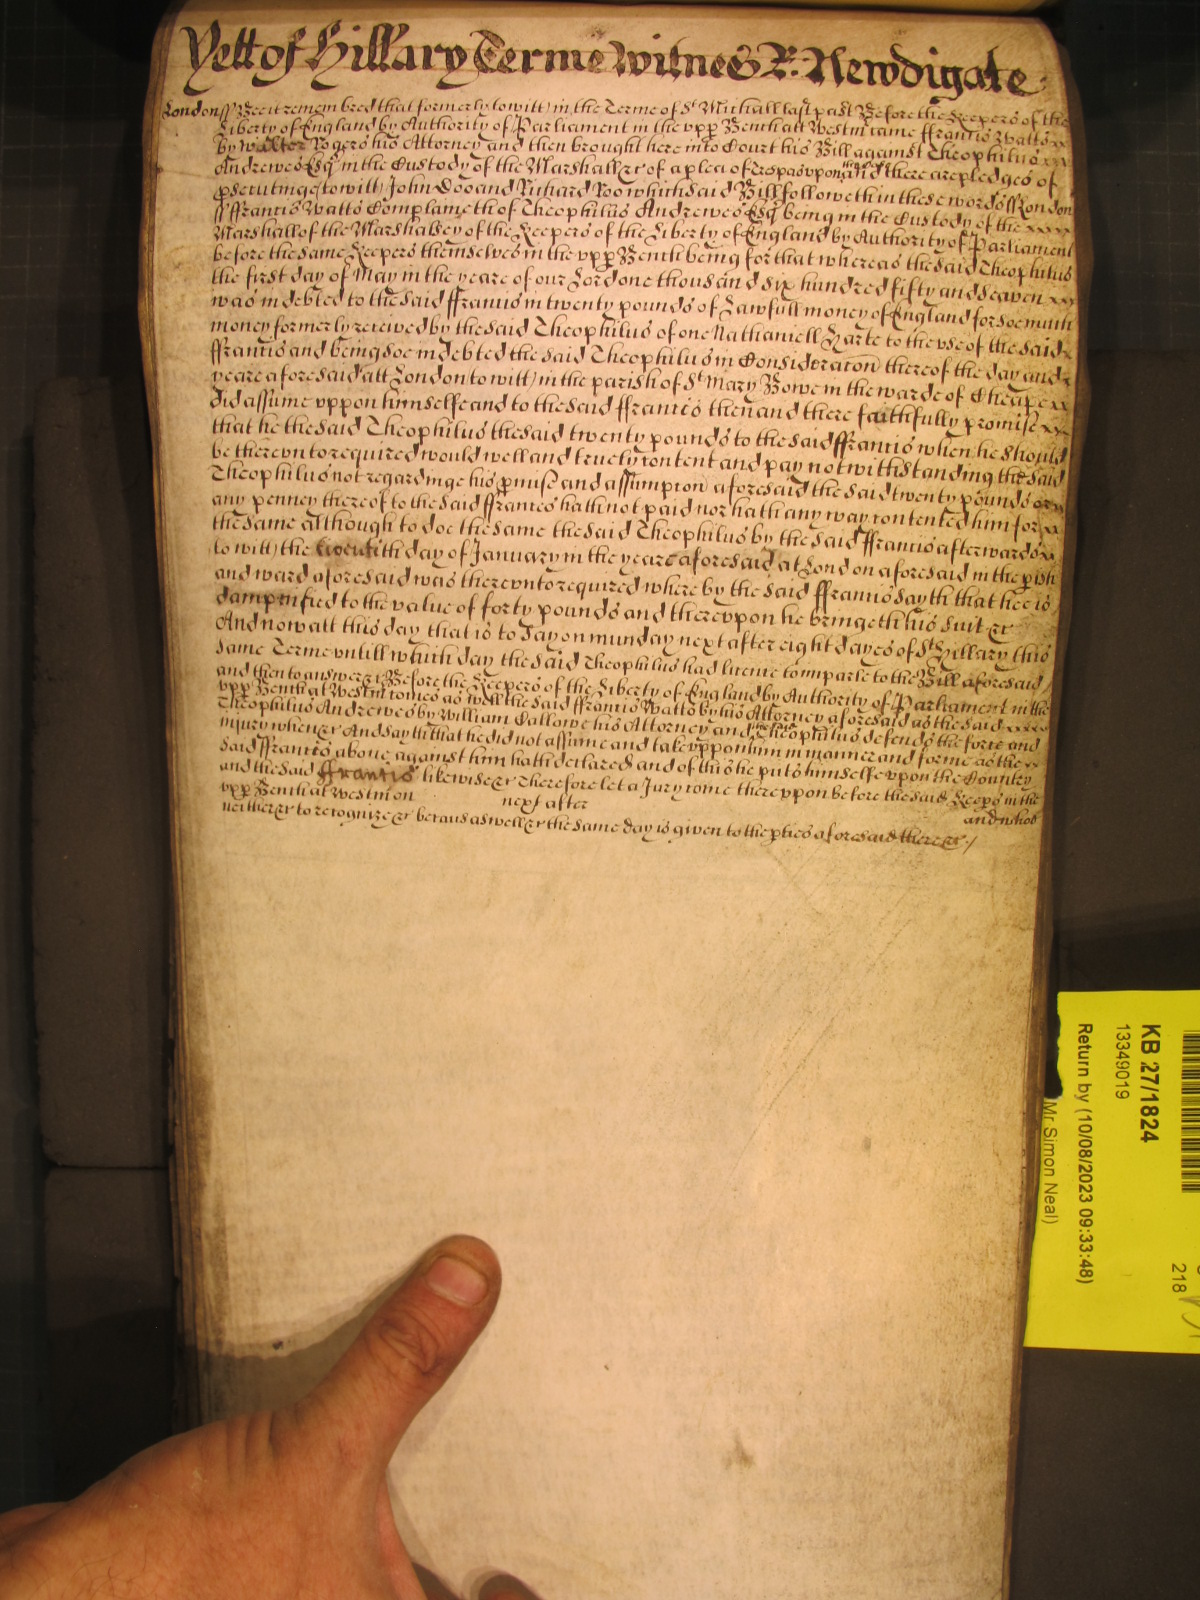 Yett of Hillary Terme Witnes R: Newdigate
London ss Bee it remembred that formerly (to witt) in the Terme of St Michaell last past Before the Keepers of the
Liberty of England by Authority of Parliament in the vpp Bench att Westm came ffrancis Watts xx
by Walter Rogers his Attorney and then brought here into Court his Bill against Theophilus xxx
Andrewes Esqr in the Custody of the Marshall &c of a plea of Trespas vpon the Case And there are pledges of
psecutinge (to witt) John Doo and Richard Roo which said Bill followeth in these words ss London
ss ffrancis Watts Complaineth of Theophilus Andrewes Esqr being in the Custody of the xxxx
Marshall of the Marshalsey of the Keepers of the Liberty of England by Authority of Parliament
before the same Keepers themselves in the vpp Bench being for that whereas the said Theophilus
the first day of May in the yeare of our Lord one thousand six hundred fifty and seaven xxx
was indebted to the said ffrancis in twenty pounds of Lawfull money of England for soe much
money formerly received by the said Theophilus of one Nathaniell Harte to the vse of the said x
ffrancis and being soe indebted the said Theophilus in Consideracon thereof the day and x
yeare aforesaid att London (to witt) in the parish of St Mary Bowe in the warde of Cheape xx
did assume vppon himselfe and to the said ffrancis then and there faithfully promise xx
that he the said Theophilus the said twenty pounds to the said ffrancis when he should
be therevnto required would well and truely content and pay notwithstanding the said
Theophilus not regardinge his pmise and assumpcon aforesaid the said twenty pounds or xx
any penney thereof to the said ffrancis hath not paid nor hath any way contented him for xx
the same although to doe the same the said Theophilus by the said ffrancis afterwards xx
(to witt) the twentith day of January in the yeare aforesaid at London aforesaid in the pish
and ward aforesaid was therevnto required whereby the said ffrancis sayth that hee is
dampnified to the value of forty pounds and therevpon he bringeth his suit &c
And now att this day that is to say on munday next after eight dayes of St Hillary this
same Terme vntill which day the said Theophilus had licence to imparle to the Bill aforesaid
and then to answere &c Before the Keepers of the Liberty of England by Authority of Parliament in the
vpp Bench at Westm comes as well the said ffrancis Watts by his Attorney aforesaid as the said xxxx
Theophilus Andrewes by William Callowe his Attorney and the said Theophilus defends the force and
injury when &c And sayth that he did not assume and take vppon him in manner and forme as the xx
said ffrancis above against him hath declared and of this he puts himselfe vpon the Country
and the said ffrancis likewise &c Therefore let a Jury come therevppon before the said Keeps in the
vpp Bench at Westm on next after and who
neither &c to recognize &c becaus aswell &c the same day is given to the pties aforesaid there &c /
KB 27/1824
13349019
Return by (10/08/2023 09:33:48)
Mr Simon Neal)
218